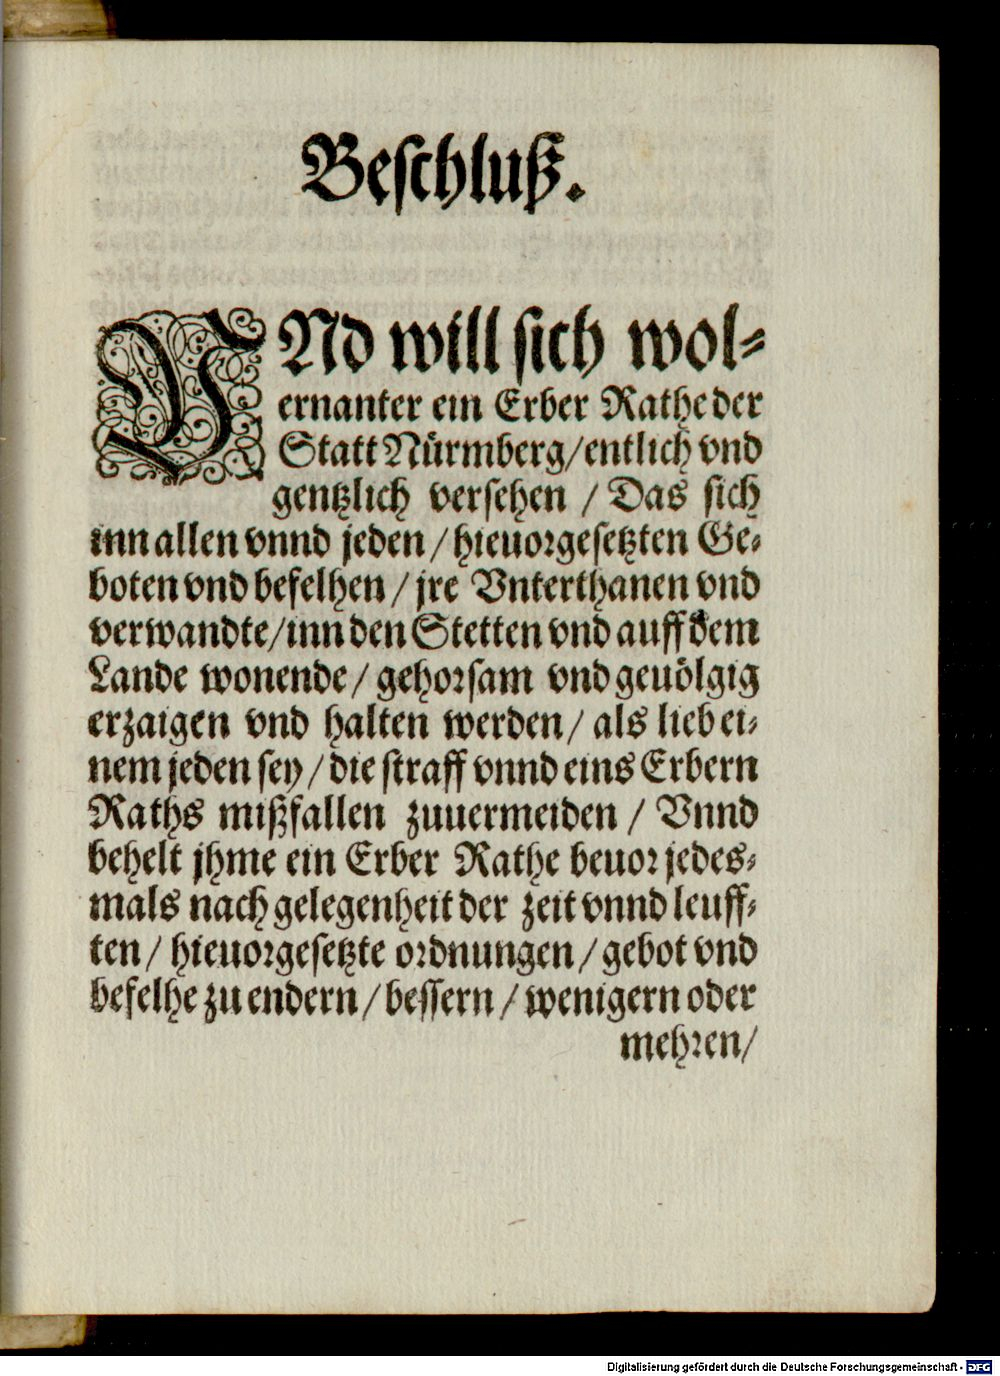 Beschluß.
VNd will sich wol-
ernanter ein Erber Rathe der
Statt Nürmberg/entlich vnd
gentzlich versehen / Das sich
inn allen vnnd jeden / hieuorgesetzten Ge-
boten vnd befelhen / jre Vnterthanen vnd
verwandte/inn den Stetten vnd auff dem
Lande wonende / gehorsam vnd geuölgig
erzaigen vnd halten werden / als lieb ei-
nem jeden sey / die straff vnnd eins Erbern
Raths mißfallen zuuermeiden / Vnnd
behelt jhme ein Erber Rathe beuor jedes-
mals nach gelegenheit der zeit vnnd leuff-
ten / hieuorgesetzte ordnungen / gebot vnd
befelhe zu endern / bessern / wenigern oder
mehren/
Digitalisierung gefördert durch die Deutsche Forschungsgemeinschaft - DFG